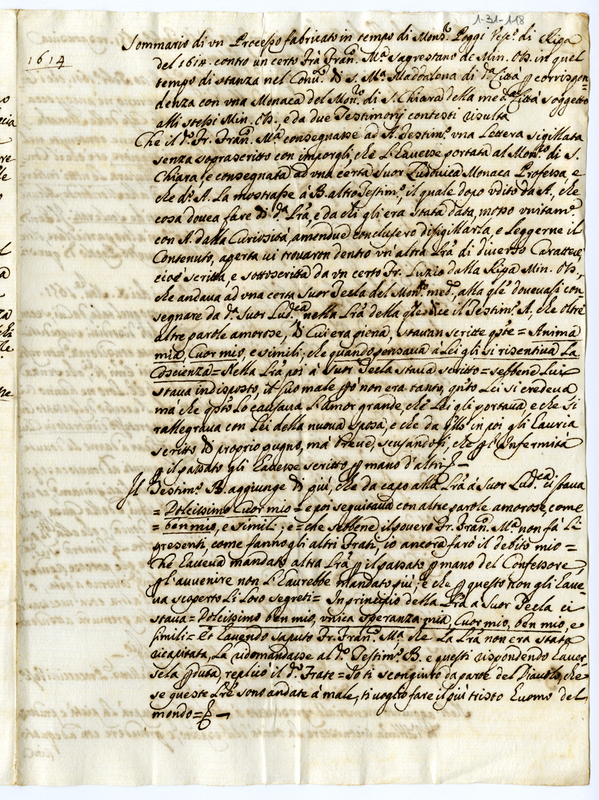 1-31-118
1614
Sommario di vn Processo fabricato in tempo di Mons.r Poggi Vesc.o di Ripa
del 1614. contro un certo Frà Fran.o M.a sagrestano de Min. Oss. in quel
tempo di stanza nel Conu.to di S. M.a Madalena di d.a Città p corrispon-
denza con vna Monaca del Mon.ro di S. Chiara della med.a Città soggetto
alli stessi Min. Oss. e da due Testimonij contesti risulta
Che il d.o Fr. Fran.o M.a consegnasse ad A. Testim.o vna Lettera sigillata
senza soprascritto con imporgli, che l'hauesse portata al Mon.ro di S.
Chiara, e consegnata ad vna certa Suor Ludouica Monaca Professa, e
che d.o A. la mostrasse à B. altro Testim.o, il quale dopo vdito da A., che
cosa douea fare di d.a Lrà, e da chi gli era stata data, mosso vnitam.e
con A. dalla Curiosità, amendue conclusero disigillarla, e leggerne il
Contenuto, aperta vi trouaron dentro vn'altra Lrà di diuerso Carattere,
cioè scritta, e sottoscritta da vn certo Fr. Luzio dalla Ripa Min. Oss.,
che andaua ad vna certa Suor Tecla del Mon.ro med.o, alla qle doueuasi con
segnare da d.a Suor Lud.ca nella Lrà della qle dice il Testim.o A., che oltre
altre parole amorose, di cui era piena, stauan scritte qste = Anima
mia, Cuor mio, e simili, che quando pensaua à Lei gli si risentiua La
Coscienza = Nella Lrà poi à Suor Tecla staua scritto = sebbene lui
staua indisposto, il suo male però non era tanto, qnto Lei si credeua
ma che qsto lo causaua l'Amor grande, che Lei gli portaua, e che si
rallegraua con Lei della nuoua sposa, e che da allora in poi gli hauria
scritto di proprio pugno, mà breue, scusandosi, che p l'Infermità
p il passato gli hauesse scritto p mano d'altri
Il Testim.o B. aggiunge di più, che da capo alla Lrà à Suor Lud.ca ci staua
= Dolcissimo Cuor mio = e poi seguitaua con altre parole amorose, come
= ben mio, e simili, e = che sebbene il pouero Fr. Fran.o M.a non fà li
presenti, come fanno gli altri Frati, io ancora farò il debito mio =
Che haueua mandato altra Lrà p il passato p mano del Confessore,
p l'auuenire non l'haurebbe mandato più, e che p questo non gli haue-
ua scoperto li loro segreti = In principio della Lrà a Suor Tecla ci
staua = Dolcissimo ben mio, vnica speranza mia, Cuor mio, ben mio, e
simili = Et hauendo saputo Fr. Fran.o M.a che la Lrà non era stata
ricapitata, la ridomandasse al d.o Testim.o B. e questi rispondendo hauer
sela pduta, replicò il d.o Frate = Io ti scongiuro da parte del Diauolo, che
se queste Lrè sono andate à male, ti voglio fare il più tristo huomo del
mondo =